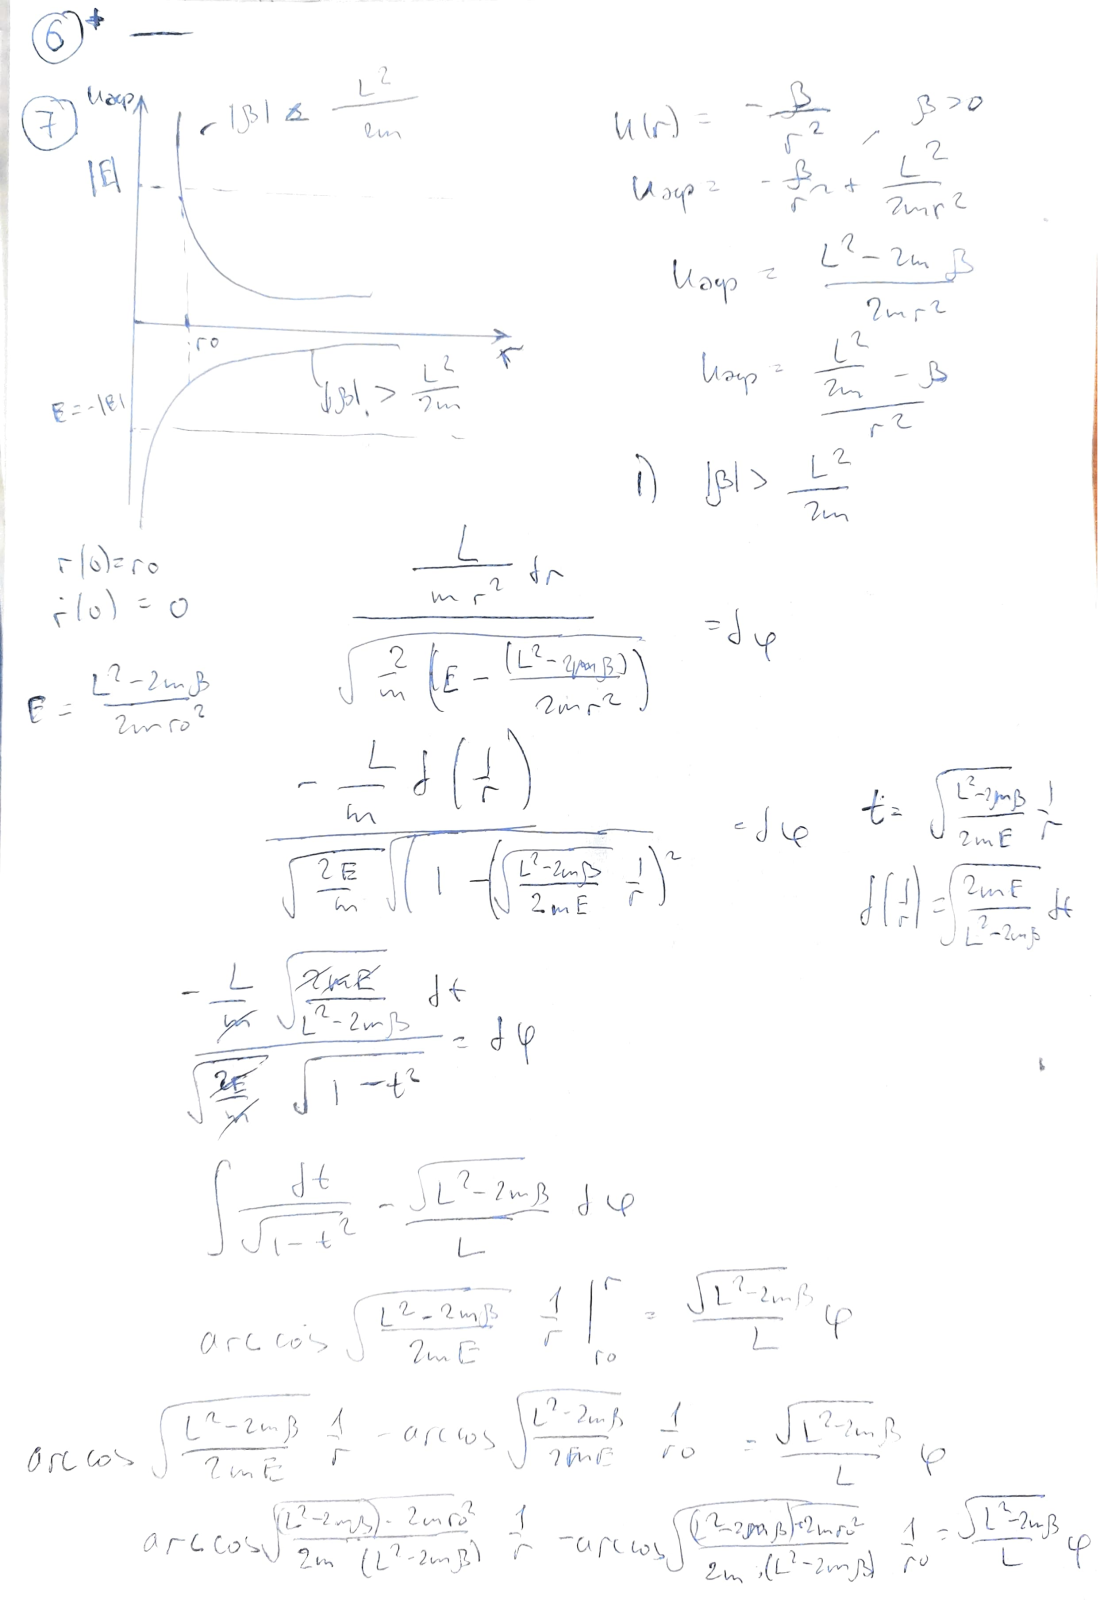 6 + —
7
Uэф
|β| < L²/2m
|E|
r0
r
|β| > L²/2m
E = -|E|
U(r) = - β/r² , β > 0
Uэф = - β/r² + L²/2mr²
Uэф = (L² - 2mβ)/2mr²
Uэф = (L²/2m - β)/r²
i) |β| > L²/2m
r(0) = r0
ṙ(0) = 0
E = (L² - 2mβ)/2mr0²
(L/mr² dr)/√(2/m (E - (L² - 2mβ)/2mr²)) = dφ
(- L/m d(1/r))/(√(2E/m) √(1 - (√((L² - 2mβ)/2mE) 1/r)²)) = dφ
t = √((L² - 2mβ)/2mE) 1/r
d(1/r) = √(2mE/(L² - 2mβ)) dt
(- L/m √(2mE/(L² - 2mβ)) dt)/(√(2E/m) √(1 - t²)) = dφ
∫ dt/√(1 - t²) - √(L² - 2mβ)/L dφ
arccos √((L² - 2mβ)/2mE) 1/r |r r0 = √(L² - 2mβ)/L φ
arccos √((L² - 2mβ)/2mE) 1/r - arccos √((L² - 2mβ)/2mE) 1/r0 = √(L² - 2mβ)/L φ
arccos √((L² - 2mβ) · 2mr0²/2m · (L² - 2mβ)) 1/r - arccos √((L² - 2mβ) · 2mr0²/2m · (L² - 2mβ)) 1/r0 = √(L² - 2mβ)/L φ